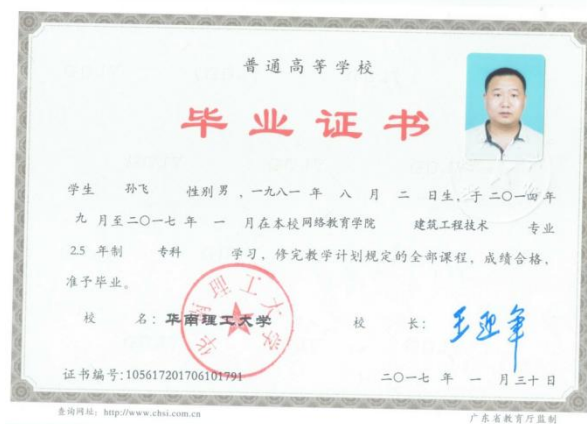 普通高等学校
毕业证书
学生 孙飞 性别 男，一九八一 年 八 月 二 日生，于 二〇一四 年
九 月至 二〇一七 年 一 月在本校 网络教育学院 建筑工程技术 专业
2.5 年制 专科 学习，修完教学计划规定的全部课程，成绩合格，
准予毕业。
校 名：华南理工大学 校 长：王迎军
华南理工大学
证书编号：105617201706101791 二〇一七 年 一 月三十日
查询网址：http://www.chsi.com.cn 广东省教育厅监制